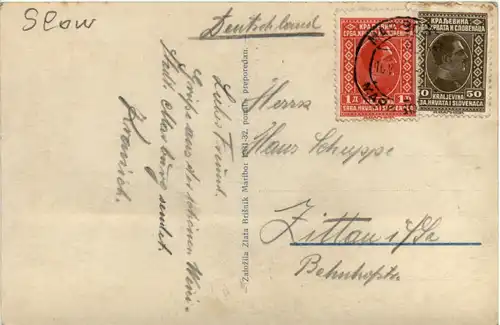 Slow
Deutschland
Lieber Freund.
Grüße aus der schönen Weni-
Stadt Marburg sendet
Založila Zlata Brišnik Maribor 1931-32. ponatis prepovedan.
Herrn
Hans Schuppe
Zittau i/Sa
Bahnhofstr.
КРАЉЕВИНА
СРБА, ХРВАТА И СЛОВЕНАЦА
1 Д
КРАЉЕВИНА
ХРВАТА И СЛОВЕНАЦА
0 50
KRALJEVINA
SRBA, HRVATA I SLOVENACA